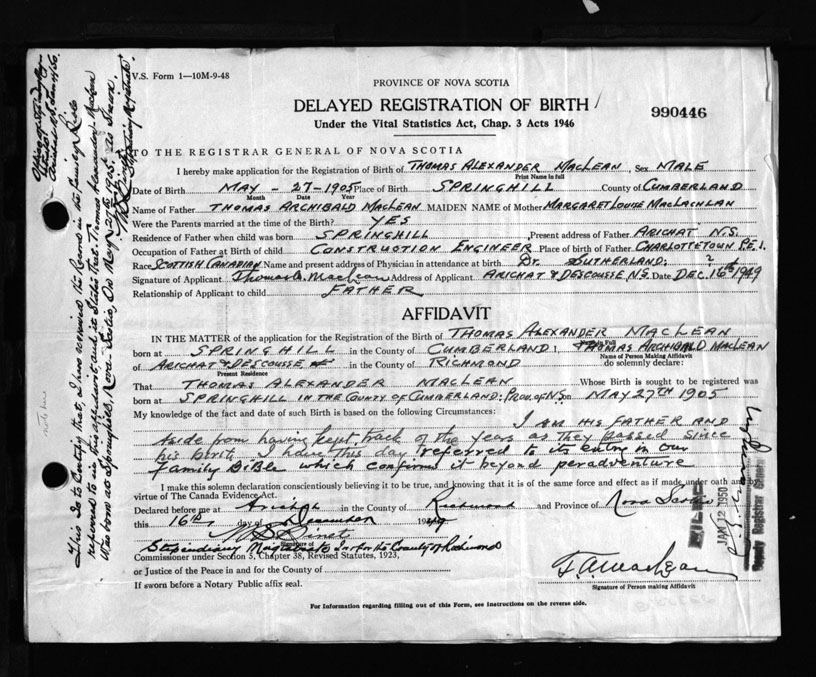 V.S. Form 1—10M-9-48
PROVINCE OF NOVA SCOTIA
DELAYED REGISTRATION OF BIRTH
990446
Under the Vital Statistics Act, Chap. 3 Acts 1946
TO THE REGISTRAR GENERAL OF NOVA SCOTIA
I hereby make application for the Registration of Birth of THOMAS ALEXANDER MACLEAN, Sex MALE
Print Name in full
Date of Birth MAY - 27 - 1905 Place of Birth SPRINGHILL County of CUMBERLAND
Month Date Year
Name of Father THOMAS ARCHIBALD MACLEAN MAIDEN NAME of Mother MARGARET LOUISE MACLACHLAN
Were the Parents married at the time of Birth? YES
Residence of Father when child was born SPRINGHILL, Present address of Father ARICHAT N.S.
Occupation of Father at Birth of child CONSTRUCTION ENGINEER Place of birth of Father CHARLOTTETOWN P.E.I.
Race SCOTTISH CANADIAN Name and present address of Physician in attendance at birth DR. SUTHERLAND: ?
Signature of Applicant Thomas A. MacLean Address of Applicant ARICHAT & DESCOUSSE N.S. Date DEC. 16th 1949
Relationship of Applicant to child FATHER
AFFIDAVIT
IN THE MATTER of the application for the Registration of Birth of THOMAS ALEXANDER MACLEAN
born at SPRINGHILL in the County of CUMBERLAND I, THOMAS ARCHIBALD MACLEAN
Name of Person Making Affidavit
of ARICHAT & DESCOUSSE in the County of RICHMOND do solemnly declare:
Present Residence
That THOMAS ALEXANDER MACLEAN Whose Birth is sought to be registered was
born at SPRINGHILL IN THE COUNTY OF CUMBERLAND: PROV. OF N.S. on MAY 27TH 1905
My knowledge of the fact and date of such Birth is based on the following Circumstances:
I AM HIS FATHER AND
aside from having kept track of the years as they passed since
his birth I have this day referred to its entry in our
family Bible which confirms it beyond peradventure
I make this solemn declaration conscientiously believing it to be true, and knowing that it is of the same force and effect as if made under oath and by
virtue of The Canada Evidence Act.
Declared before me at Arichat in the County of Richmond and Province of Nova Scotia
this 16th day of December 1949
Signature of
Stipendiary Magistrate In & for the County of Richmond
Commissioner under Section 5, Chapter 38, Revised Statutes, 1923,
or Justice of the Peace in and for the County of
If sworn before a Notary Public affix seal.
T. A. MacLean
Signature of Person making Affidavit
For Information regarding filling out of this Form, see instructions on the reverse side.
This Is to Certify that, I have reviewed the Record in the Family Bible
referred to in this affidavit and it states that Thomas Alexander MacLean
Was born at Springhill, Nova Scotia, On May 27th 1905
Stipendiary Magistrate
note here
FILED
JAN 12 1950
Deputy Registrar General